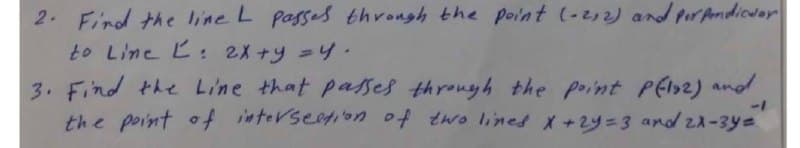 2. Find the line L passes through the point (-2,2) and perpendicular
to Line L': 2x+y=4.
3. Find the Line that passes through the point P(-1,2) and
the point of intersection of two lines x+2y=3 and 2x-3y=-1